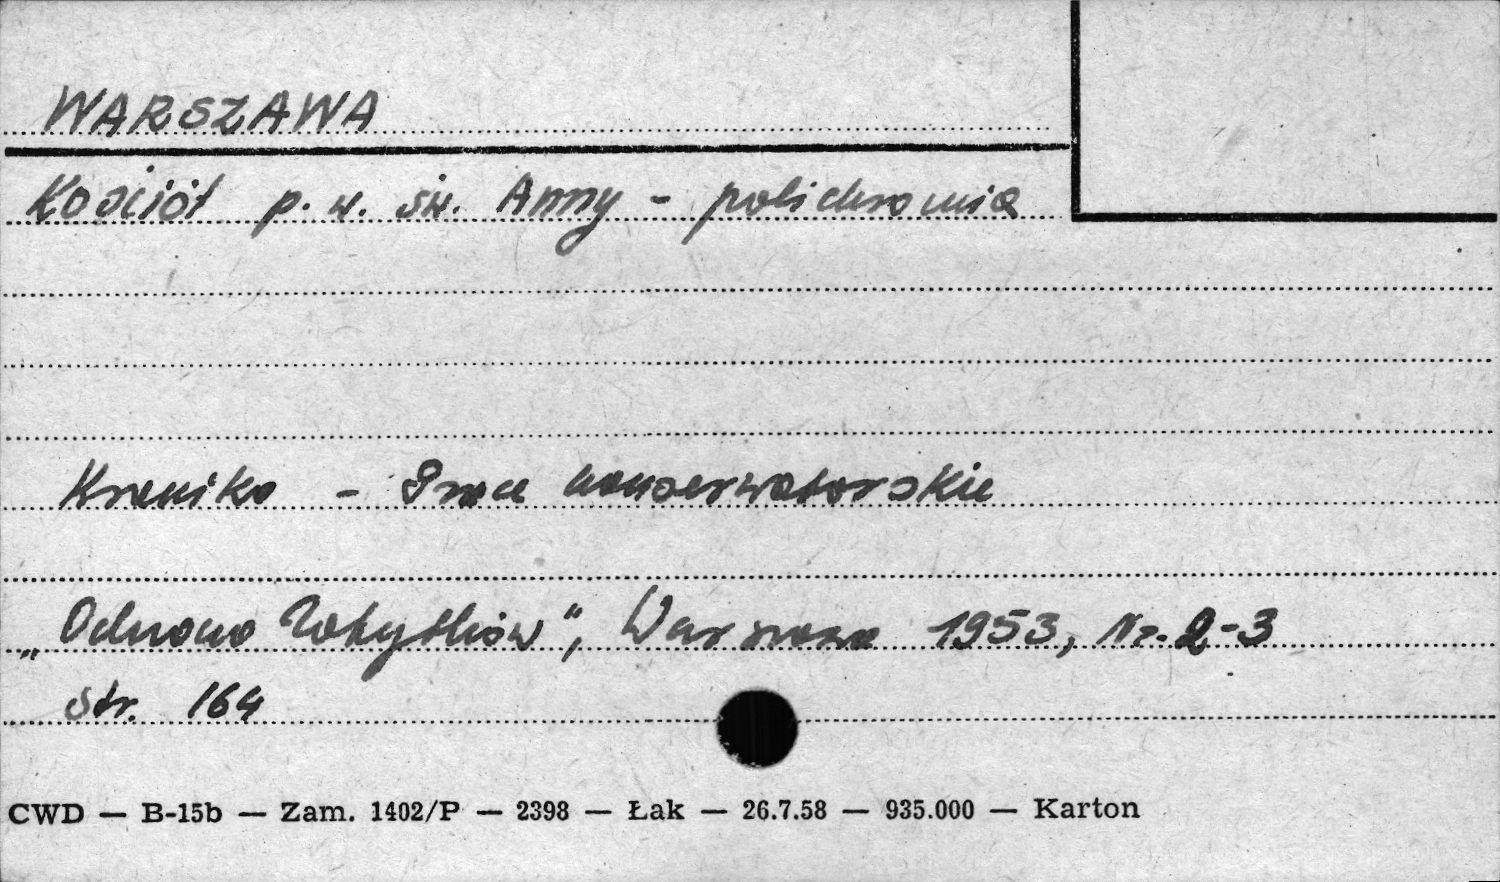 WARSZAWA
Kościół p.w. św. Anny - polichromia
Kronika - Prace konserwatorskie
„Ochrona Zabytków", Warszawa 1953, Nr. 2-3
str. 164
CWD — B-15b — Zam. 1402/P — 2398 — Łak — 26.7.58 — 935.000 — Karton